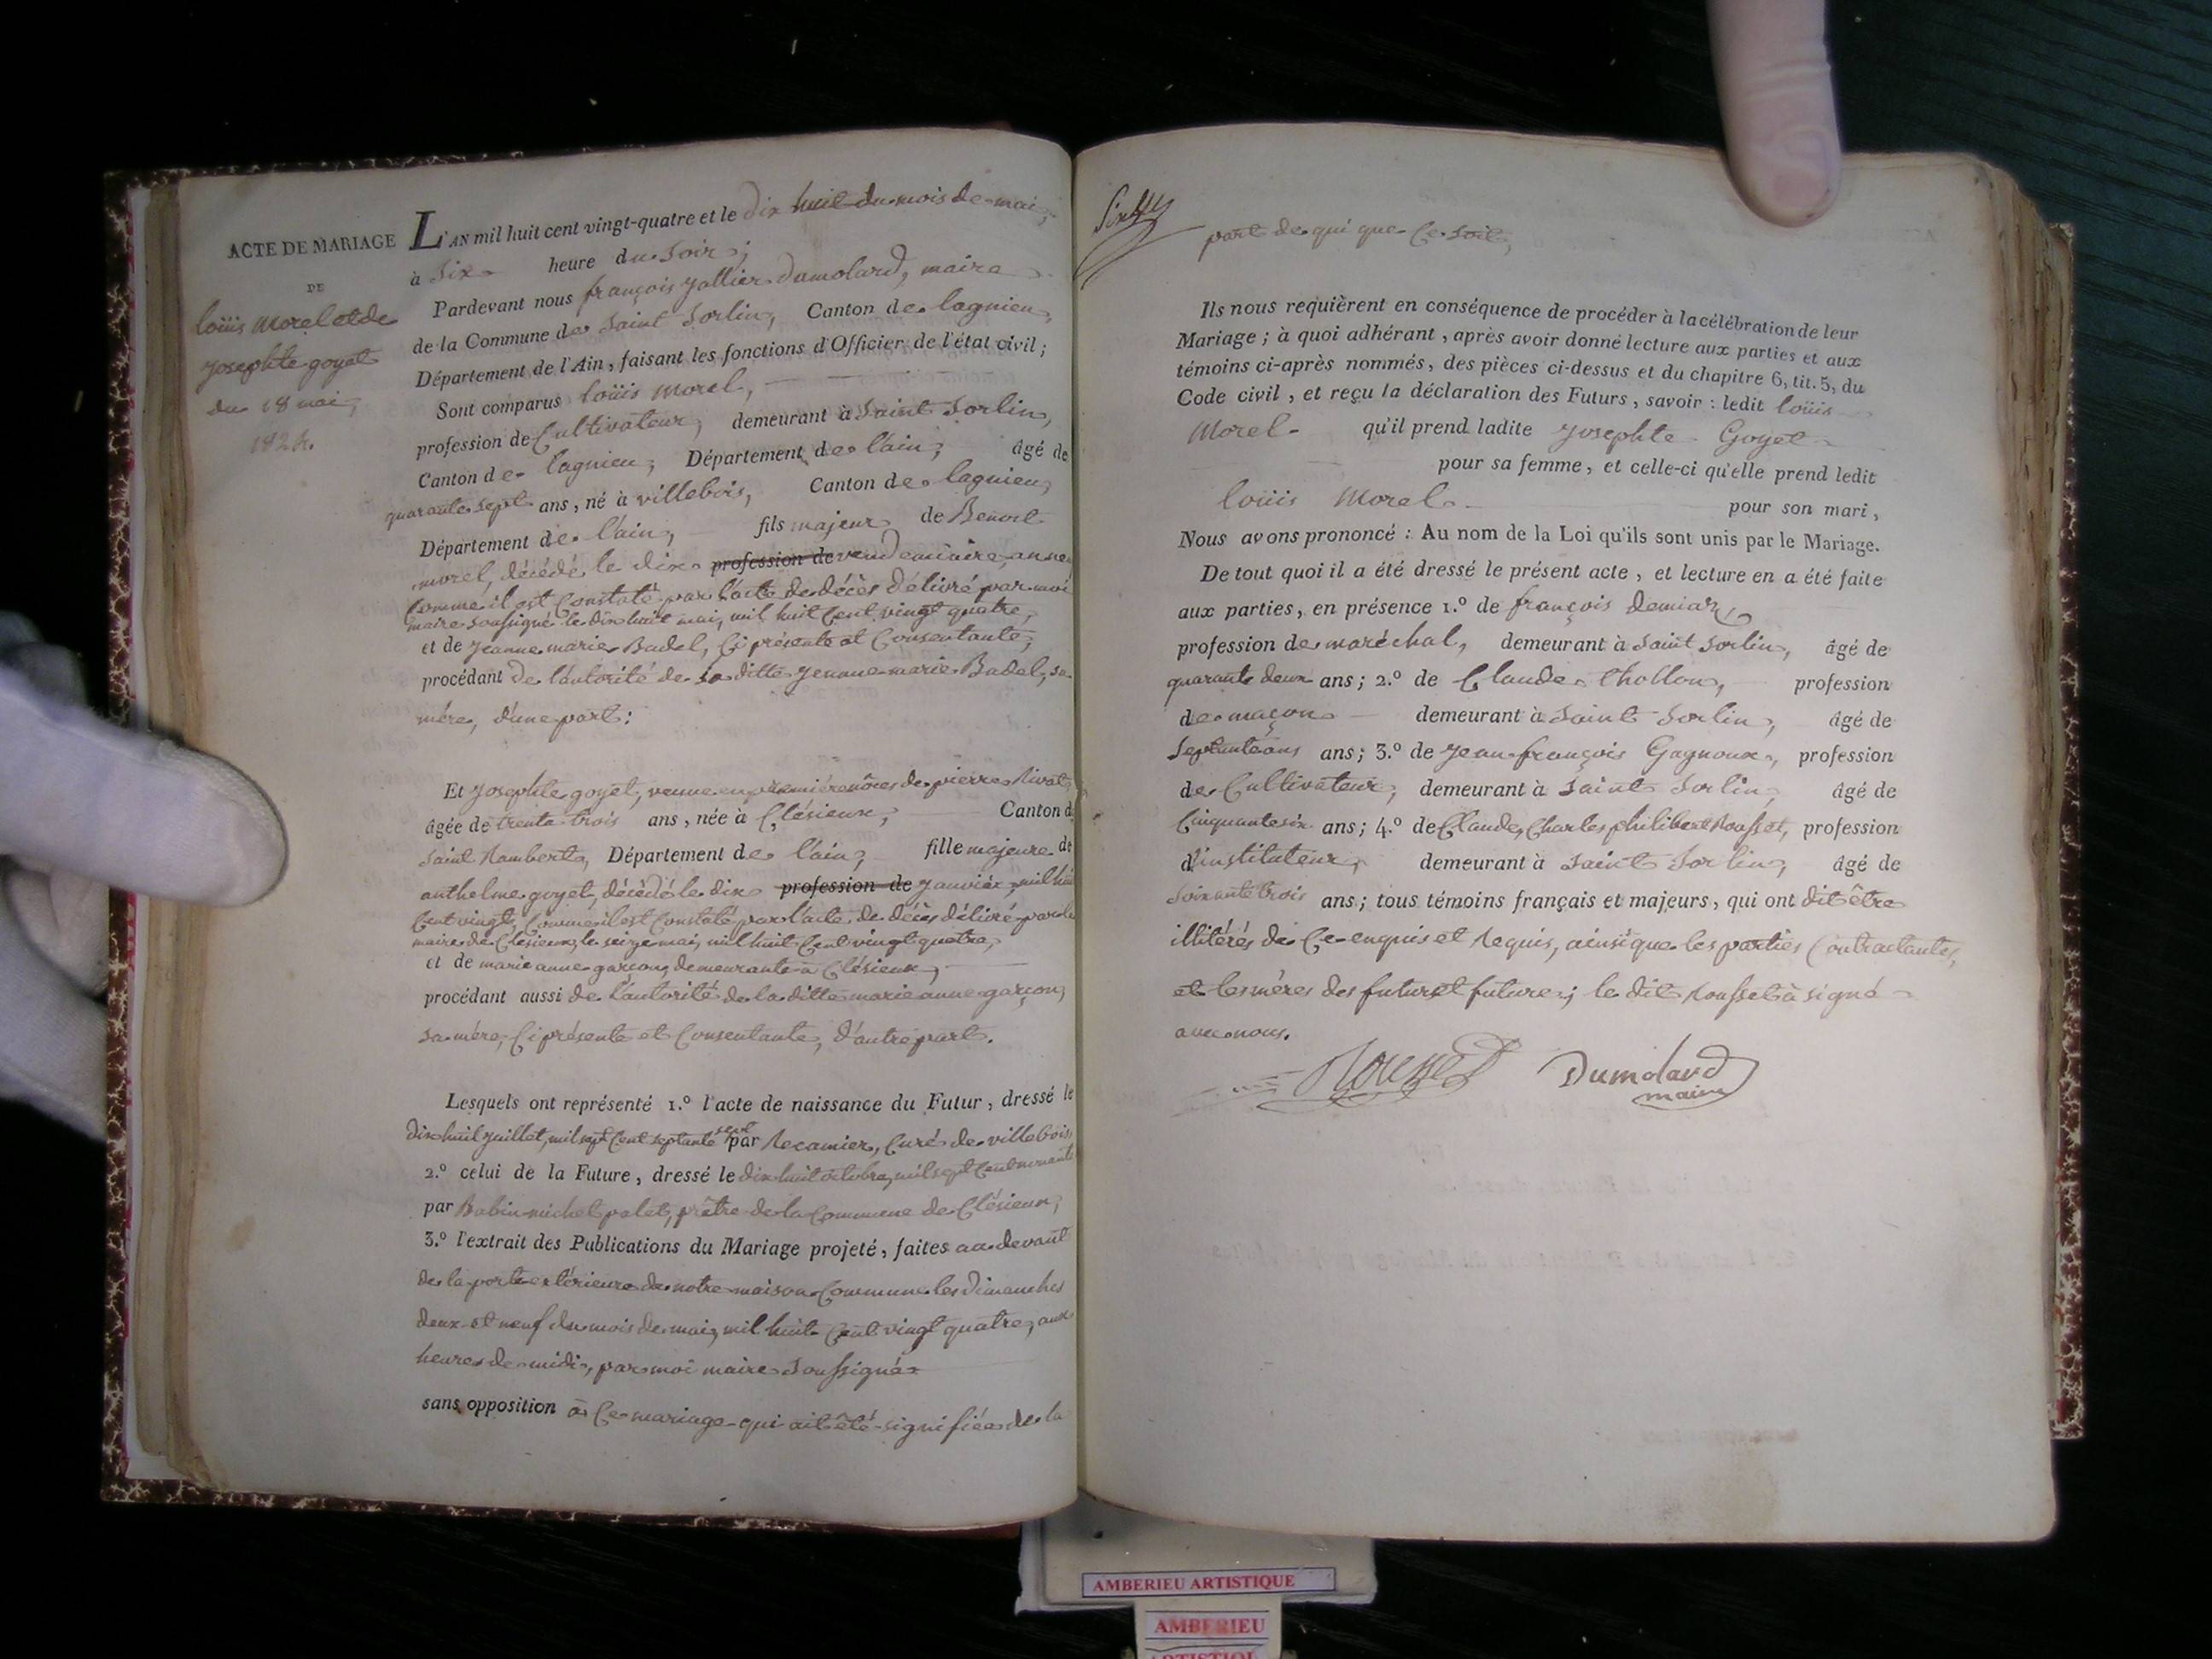 ACTE DE MARIAGE
DE
louis Morel et de
josephte goyet
du 18 mai,
1824.
L'AN mil huit cent vingt-quatre et le dix huit du mois de mai,
à six heure du soir;
Pardevant nous françois vallier dumolard, maire
de la Commune de Saint Sorlin, Canton de lagnieu,
Département de l'Ain, faisant les fonctions d'Officier de l'état civil;
Sont comparus louis morel,
profession de Cultivateur, demeurant à Saint Sorlin,
Canton de lagnieu, Département de l'ain, âgé de
quarante sept ans, né à villebois, Canton de lagnieu,
Département de l'ain, fils majeur de Benoit
morel, décédé le dix profession de vendemiaire, anne
comme il est Constaté par l'acte de décès délivré par moi
maire soussigné le dix huit mai, mil huit Cent vingt quatre,
et de jeanne marie Badel, Ci présente et Consentante,
procédant de l'autorité de sa ditte jeanne marie Badel, sa
mére, d'une part:
Et josephte goyet, veuve en premiére nôces de pierre Rivat
âgée de trente trois ans, née à Clésieux, Canton d
saint Rambert, Département de l'ain, fille majeure de
anthelme goyet, décédé le dix profession de janvier, mil huit
Cent vingt, Comme il est Constaté par l'acte de décès délivré par le
maire de Clésieux, le seize mai, mil huit Cent vingt quatre,
et de marie anne garçon, demeurante à Clésieux,
procédant aussi de l'autorité de la ditte marie anne garçon,
sa mére, Ci présente et Consentante, d'autre part.
Lesquels ont représenté 1.º l'acte de naissance du Futur, dressé le
dix huit juillet, mil sept Cent septante sept par Recamier, Curé de villebois,
2.º celui de la Future, dressé le dix huit octobre, mil sept Cent nonante
par Babin michel palet, prêtre de la Commune de Clésieux,
3.º l'extrait des Publications du Mariage projeté, faites au devant
de la porte extérieure de notre maison Commune les Dimanches
deux et neuf du mois de mai, mil huit Cent vingt quatre, aux
heures de midi, par moi maire soussigné
sans opposition à Ce mariage qui ait été signifiée de la
part de qui que Ce soit,
Ils nous requièrent en conséquence de procéder à la célébration de leur
Mariage; à quoi adhérant, après avoir donné lecture aux parties et aux
témoins ci-après nommés, des pièces ci-dessus et du chapitre 6, tit. 5, du
Code civil, et reçu la déclaration des Futurs, savoir: ledit louis
Morel qu'il prend ladite josephte Goyet
pour sa femme, et celle-ci qu'elle prend ledit
louis Morel pour son mari,
Nous avons prononcé: Au nom de la Loi qu'ils sont unis par le Mariage.
De tout quoi il a été dressé le présent acte, et lecture en a été faite
aux parties, en présence 1.º de françois demiaz,
profession de maréchal, demeurant à Saint Sorlin, âgé de
quarante deux ans; 2.º de Claude thollon, profession
de maçon demeurant à Saint Sorlin, âgé de
septante ans ans; 3.º de jean françois Gagnoux, profession
de Cultivateur, demeurant à Saint Sorlin, âgé de
Cinquante six ans; 4.º de Claude, Charles philibert Rousset, profession
d'instituteur, demeurant à Saint Sorlin, âgé de
soixante trois ans; tous témoins français et majeurs, qui ont dit être
illitérés de Ce enquis et Requis, ainsi que les parties Contractantes,
et les mères des futur et future; le dit Rousset à signé
avec nous.
Rousset Dumolard
maire
AMBERIEU ARTISTIQUE
AMBERIEU
ARTISTIQUE